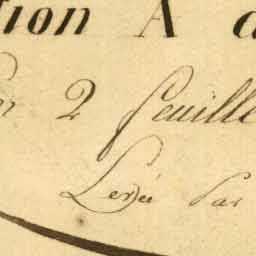 tion A d
en 2 feuille
Levée Par